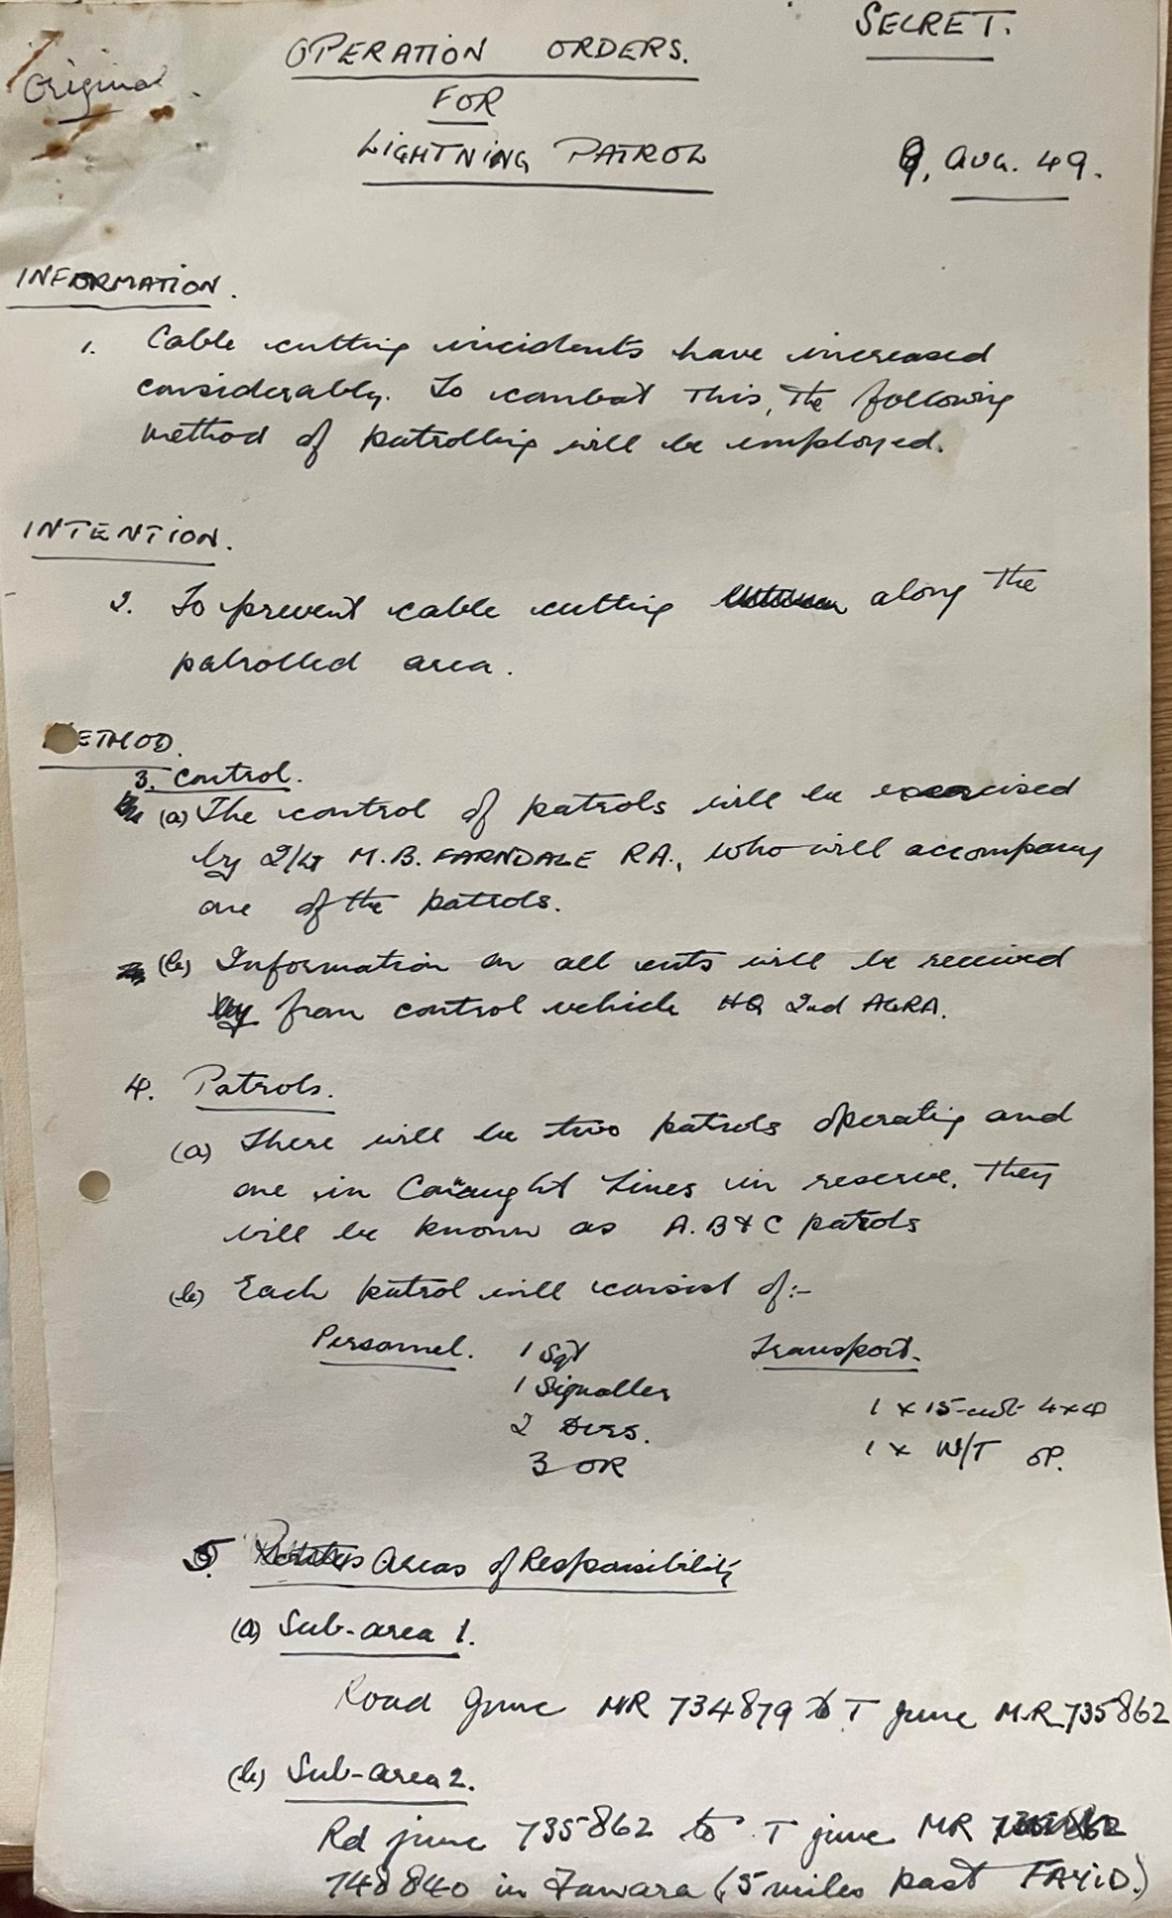 SECRET.
OPERATION ORDERS.
Original.
FOR
LIGHTNING PATROL
9, AUG. 49.
INFORMATION.
1. Cable cutting incidents have increased
considerably. To combat This, The following
method of patrolling will be employed.
INTENTION.
2. To prevent cable cutting along The
patrolled area.
METHOD.
3. Control.
(a) The control of patrols will be exercised
by 2/Lt M.B. FARNDALE RA., who will accompany
one of the patrols.
(b) Information on all cuts will be received
from control vehicle HQ 2nd AGRA.
4. Patrols.
(a) There will be two patrols operating and
one in Lines in reserve. They
will be known as A.B & C patrols
(b) Each patrol will consist of:-
Personnel. 1 Sgt Transport.
1 Signaller
1 x 15-cwt 4x4
2 Dvrs.
1 x W/T OP.
3 OR
5. Areas of Responsibility
(a) Sub-area 1.
Road junc MR 734879 to T junc M.R 735862
(b) Sub-area 2.
Rd junc 735862 to T junc MR
748840 in Fanara (5 miles past FAYID.)